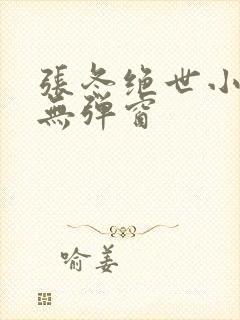 張冬绝世小
無彈窗
喻姜